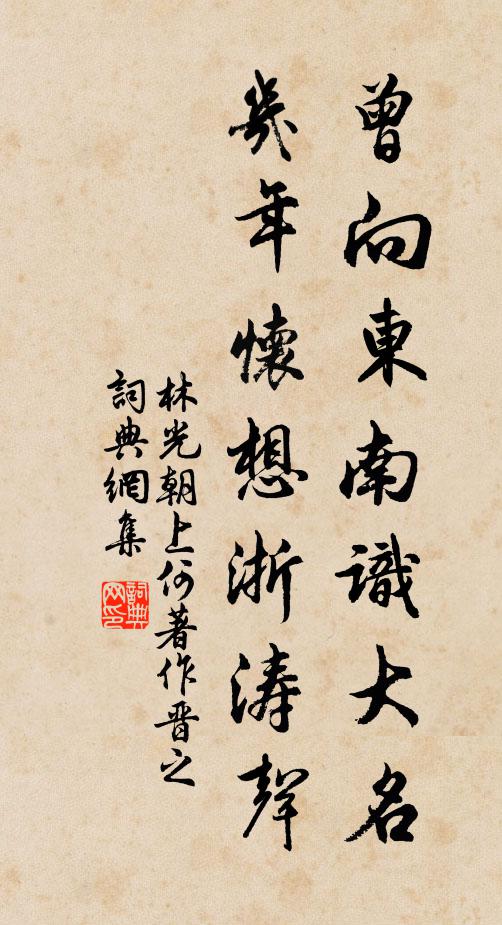 曾向東南識大名
幾年懷想浙濤聲
林光朝上何著作晋之
詞典網集
詞典
网印